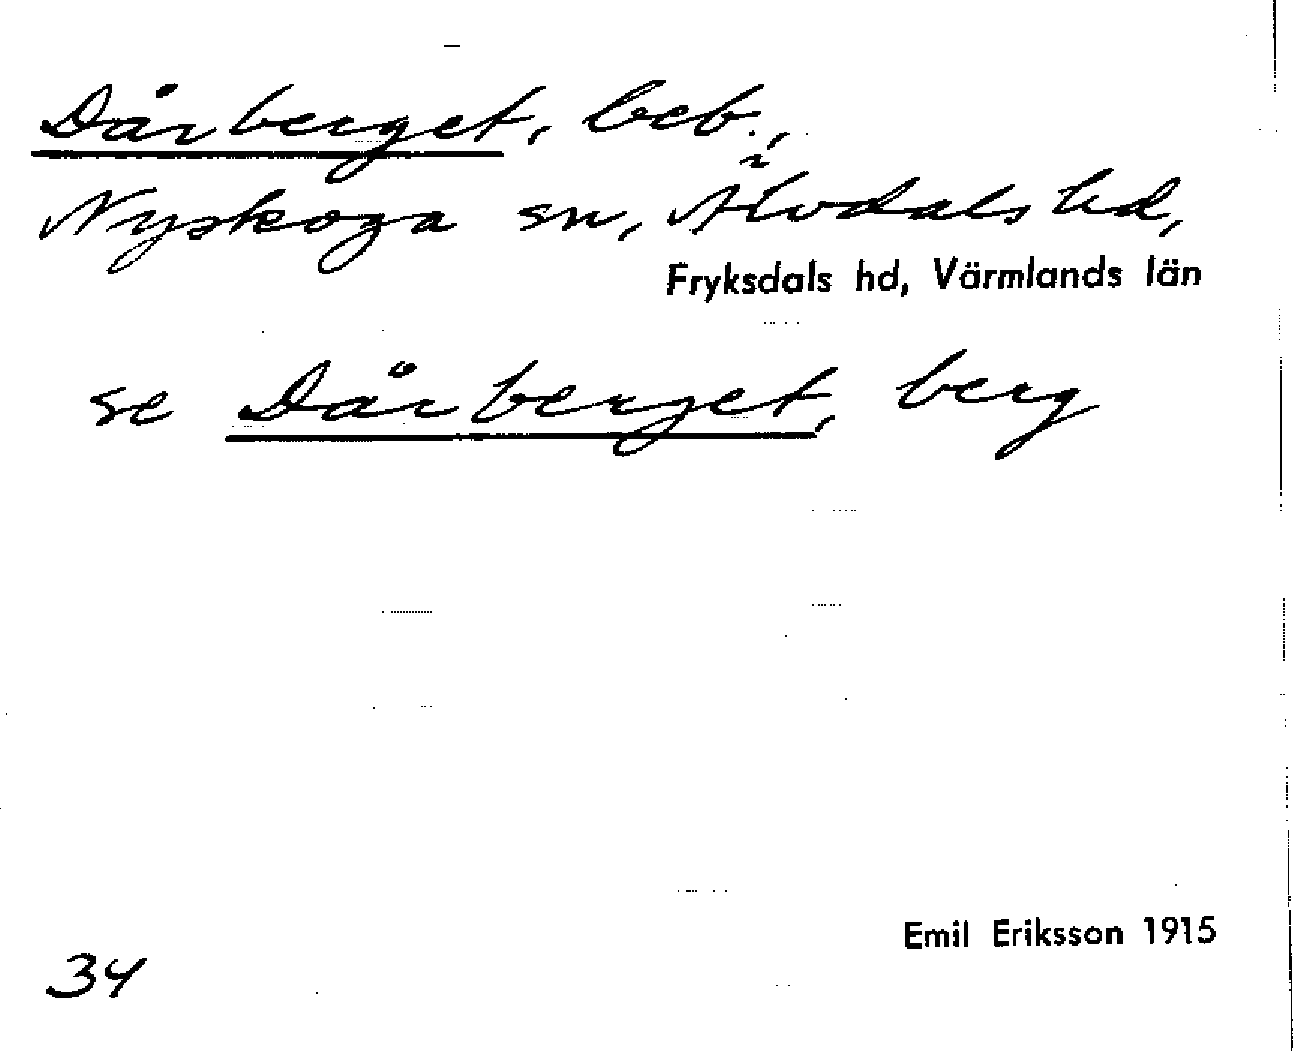 Dårberget, beb.,
Nyskoga sn, Älvdals hd,
Fryksdals hd, Värmlands län
se Dårberget, berg
Emil Eriksson 1915
34